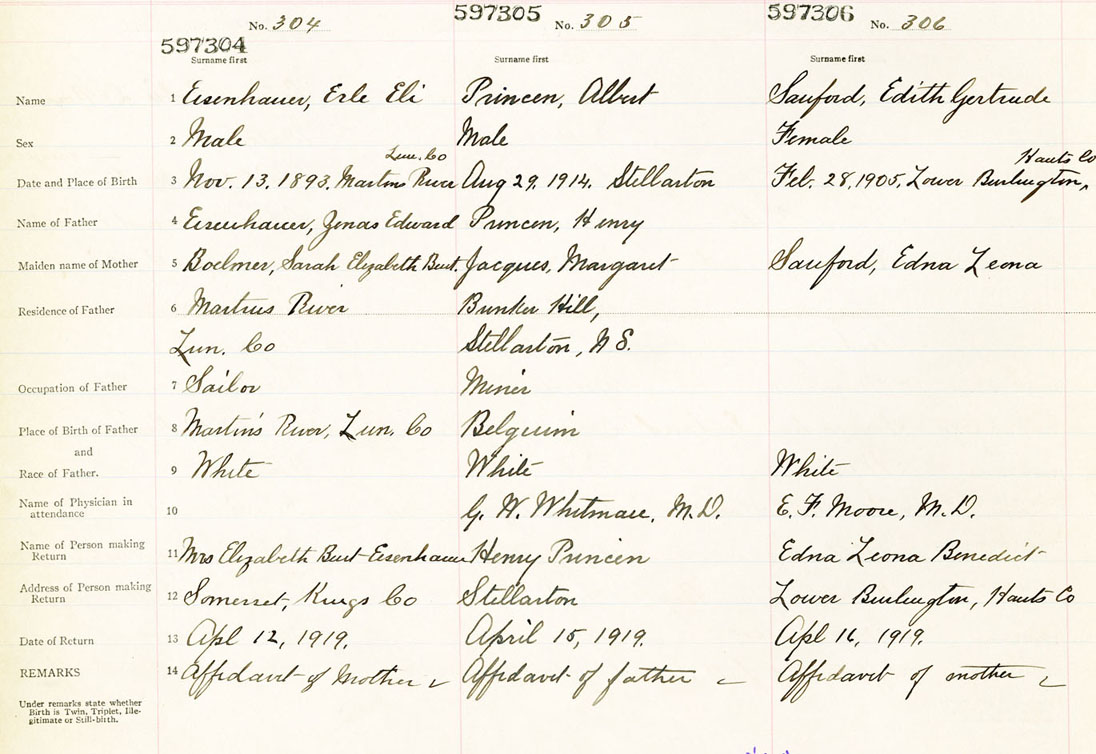 No. 304 597305 No. 305 597306 No. 306
597304
Surname first Surname first Surname first
Name 1 Eisenhauer, Erle Eli Princen, Albert Sanford, Edith Gertrude
Sex 2 Male Male Female
Lun. Co Hants Co
Date and Place of Birth 3 Nov. 13, 1893. Martins River Aug 29, 1914. Stellarton Feb. 28, 1905, Lower Burlington,
Name of Father 4 Eisenhauer, Jonas Edward Princen, Henry
Maiden name of Mother 5 Boelmer, Sarah Elizabeth Burt. Jacques, Margaret Sanford, Edna Leona
Residence of Father 6 Martins River Bunker Hill,
Lun. Co Stellarton, N S.
Occupation of Father 7 Sailor Miner
Place of Birth of Father 8 Martin's River, Lun. Co Belguim
and
Race of Father. 9 White White White
Name of Physician in attendance 10 G. W. Whitman, M.D. E. F. Moore, M.D.
Name of Person making Return 11 Mrs Elizabeth Burt-Eisenhauer Henry Princen Edna Leona Benedict
Address of Person making Return 12 Somerset, Kings Co Stellarton Lower Burlington, Hants Co
Date of Return 13 Apl 12, 1919. April 15, 1919. Apl 16, 1919.
REMARKS 14 Affidavit of Mother Affidavit of father Affidavit of mother
Under remarks state whether
Birth is Twin, Triplet, Ille-
gitimate or Still-birth.